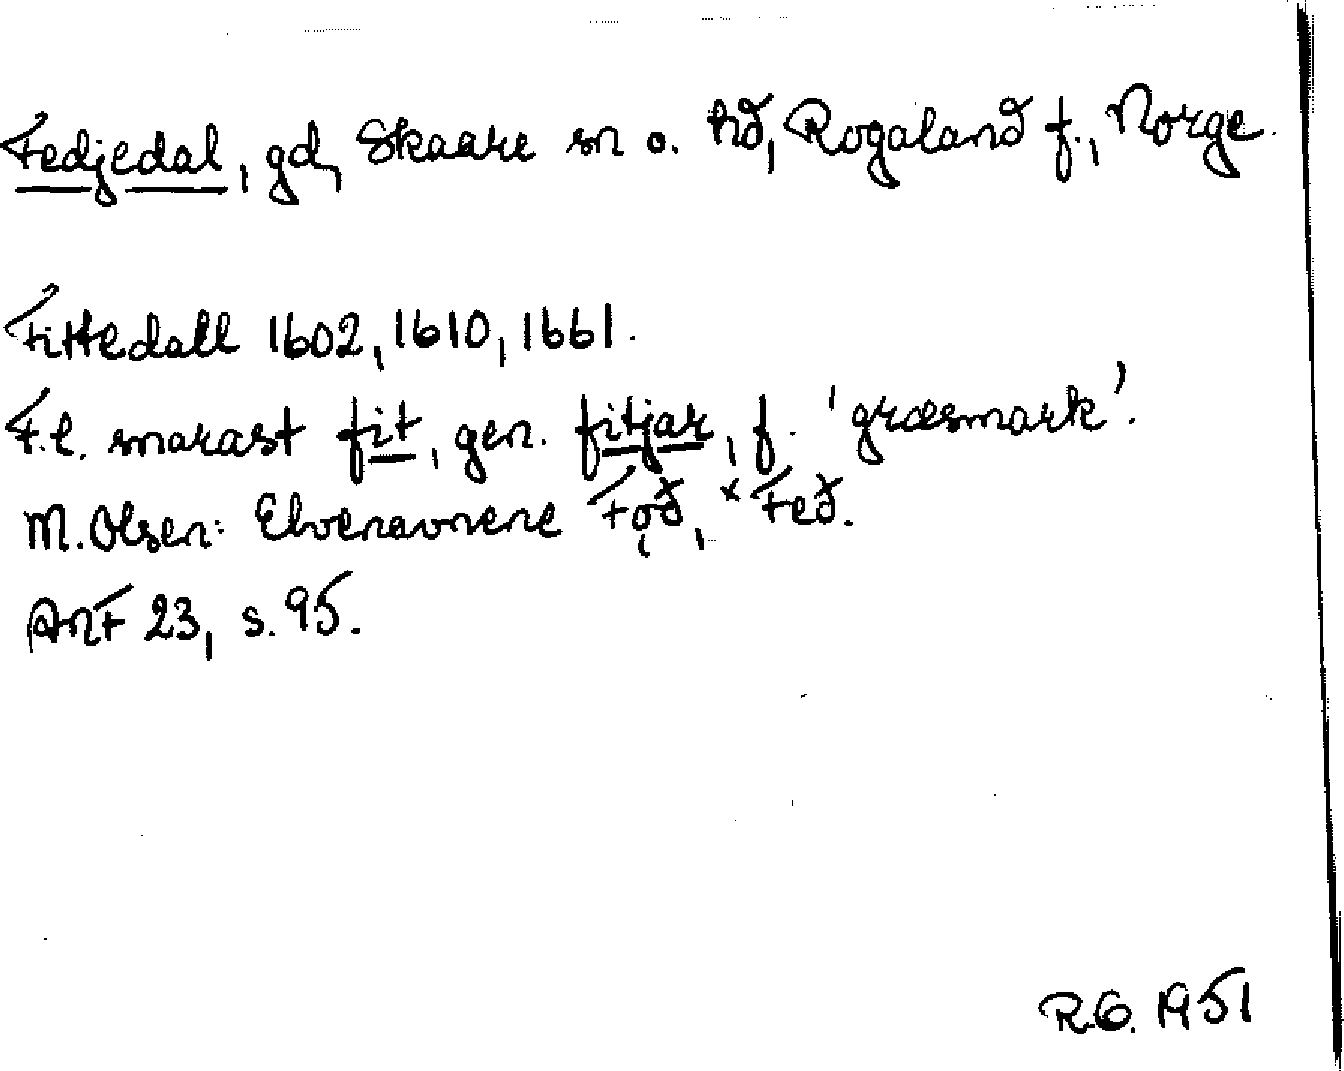 Fedjedal, gd, Skaare sn o. hd, Rogaland f., Norge.
Fittedall 1602, 1610, 1661.
F.l. snarast fit, gen. fitjar, f. 'græsmark'.
M. Olsen: Elvenavnene Fǫð, ˣFeð.
ANF 23, s. 95.
R.G. 1951